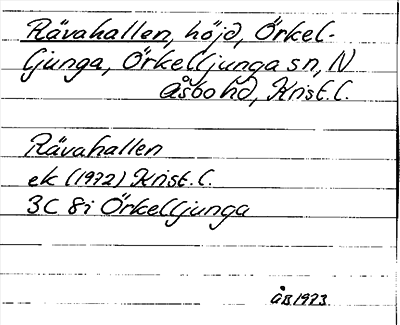 Rävahallen, höjd, Örkel-
ljunga, Örkelljunga sn, N
Åsbo hd, Krist. l.
Rävahallen
ek (1972) Krist. l.
3C 8i Örkelljunga
ÅB 1973